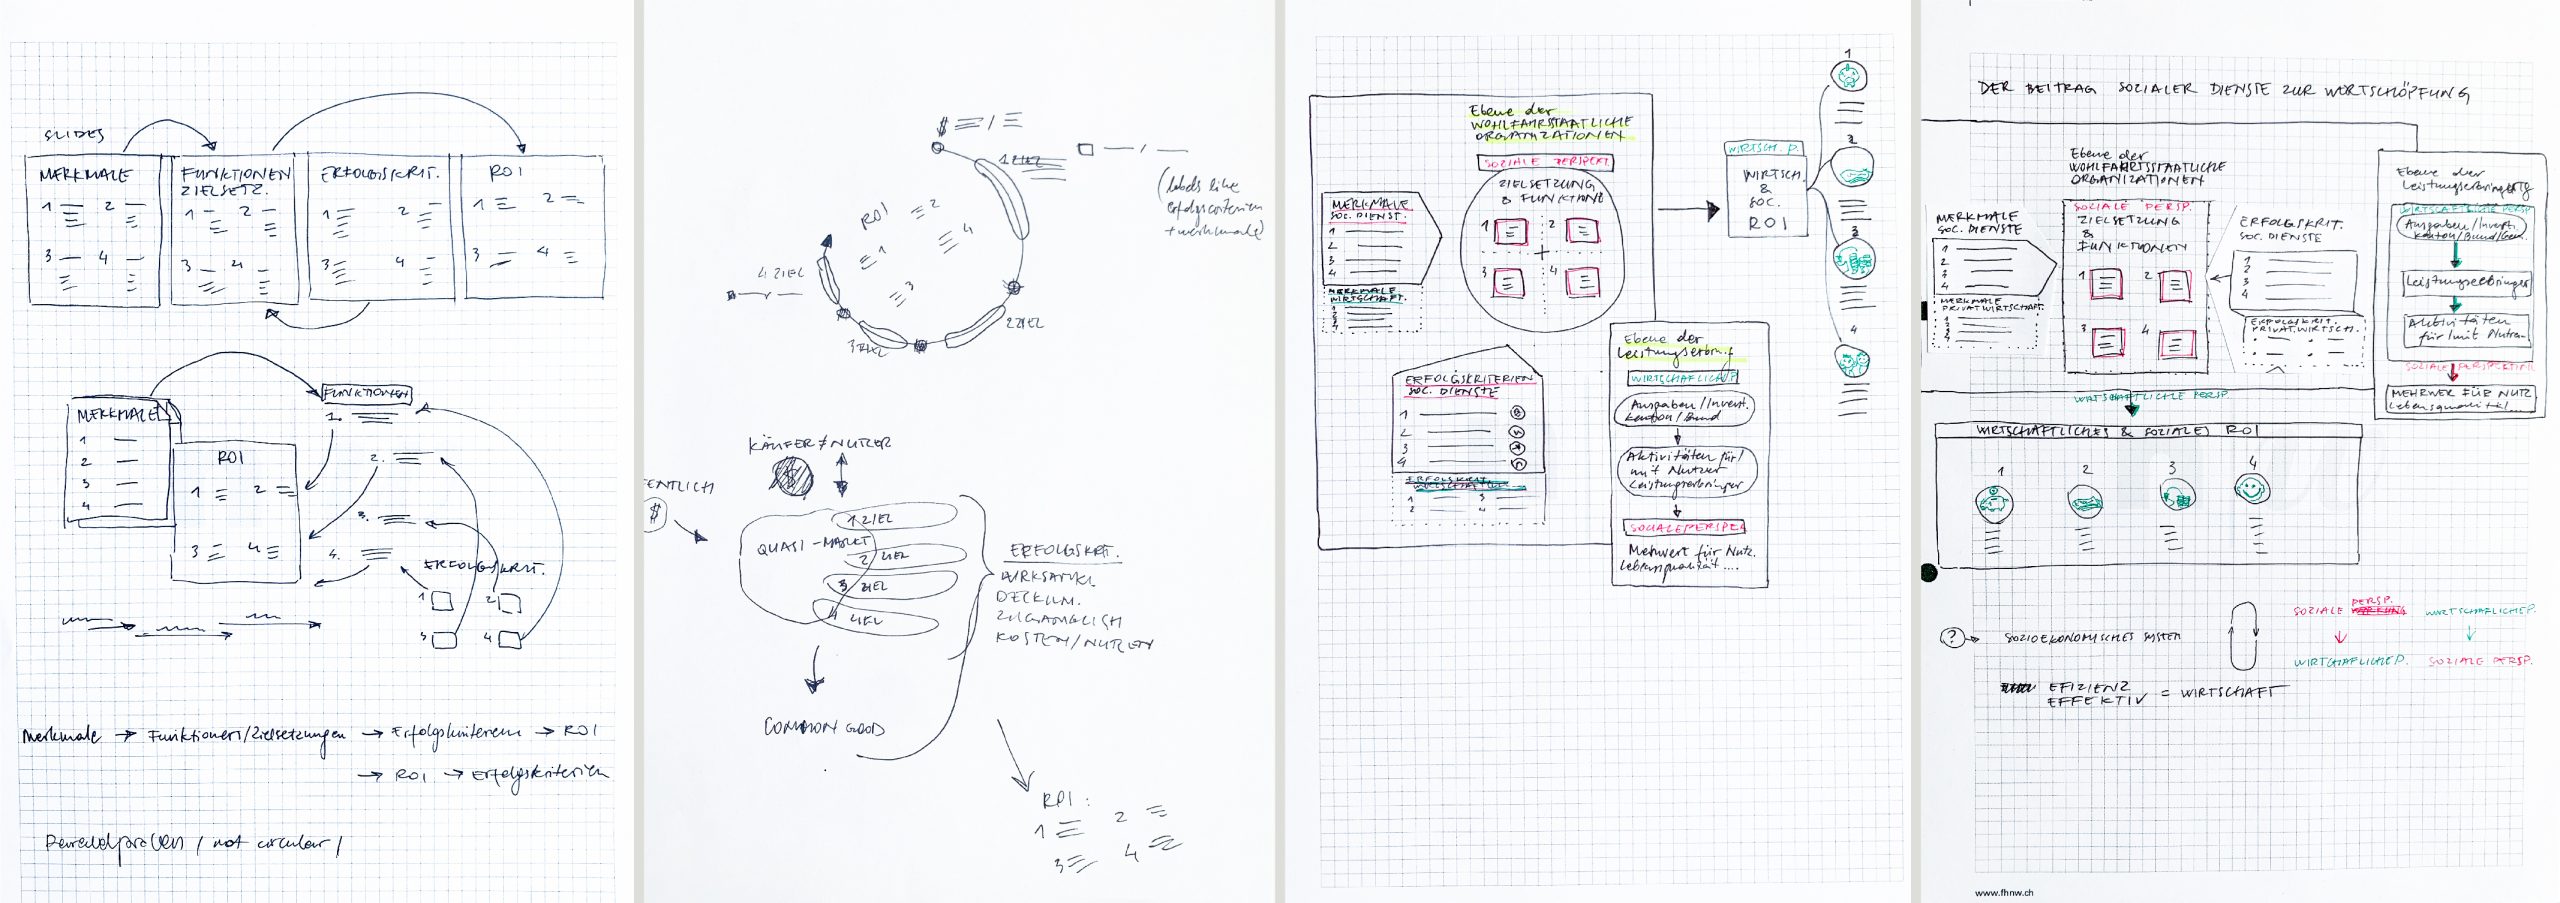 SLIDES
MERKMALE
1 2
3 4
FUNKTIONEN
ZIELSETZ.
1 2
3 4
ERFOLGSKRIT.
1 2
3 4
ROI
1 2
3 4
MERKMALE
1
2
3
4
ROI
1 2
3 4
FUNKTIONEN
1.
2.
3.
4.
ERFOLGSKRIT.
1 2
3 4
Merkmale → Funktionen/Zielsetzungen → Erfolgskriterien → ROI
→ ROI → Erfolgskriterien
/ not circular /
$ /
1 ZIEL
(labels like
erfolgscriterien
+ merkmale)
ROI
1
2
3
4
4 ZIEL
3 ZIEL
2 ZIEL
KÄUFER ≠ NUTZER
ENTLICH
$
1 ZIEL
QUASI-MARKT
2 ZIEL
3 ZIEL
4 ZIEL
ERFOLGSKRT.
WIRKSAMK.
DECKUN.
ZUGÄNGLICH
KOSTEN/NUTZEN
COMMON GOOD
ROI:
1 2
3 4
Ebene der
WOHLFAHRSTAATLICHE
ORGANIZATIONEN
SOZIALE PERSPEKT.
ZIELSETZUNG
& FUNKTIONE
1 2
3 4
MERKMALE
SOC. DIENST.
1
2
3
4
MERKMALE
WIRTSCHAFT.
ERFOLGSKRITERIEN
SOC. DIENSTE
1
2
3
4
WIRTSCH. P.
WIRTSCH.
&
SOC.
ROI
1
2
3
4
Ebene der
Leistungserbring
WIRTSCHAFLICH P
Ausgaben/Invest.
Kanton/Bund
Aktivitäten für/
mit Nutzer
Leistungserbringer
SOCIALE PERSPEK
Mehrwert für Nutz.
Lebensqualität....
DER BEITRAG SOZIALER DIENSTE ZUR WERTSCHÖPFUNG
Ebene der
WOHLFAHRTSSTAATLICHE
ORGANIZATIONEN
MERKMALE
SOC. DIENSTE
1
2
3
4
MERKMALE
PRIVATWIRTSCHAFT.
SOZIALE PERSP.
ZIELSETZUNG
&
FUNKTIONEN
1 2
3 4
ERFOLGSKRIT.
SOC. DIENSTE
1
2
3
4
ERFOLGSKRIT.
PRIVAT.WIRTSCH.
Ebene der
Leistungserbringung
WIRTSCHAFTLICHE PERSP
Ausgaben/Invest.
Kanton/Bund/Gem.
Leistungserbringer
Aktivitäten
für/mit Nutzer
SOZIALE PERSPEKTIVE
MEHRWER FÜR NUTZ
Lebensqualität...
WIRTSCHAFTLICHE PERSP.
WIRTSCHAFTLICHES & SOZIALES ROI
1 2 3 4
? → SOZIOEKONOMISCHES SYSTEM
SOZIALE PERSP.
WIRTSCHAFLICHE P.
WIRTSCHAFLICHE P.
SOZIALE PERSP.
EFIZIENZ
EFFEKTIV = WIRTSCHAFT
www.fhnw.ch